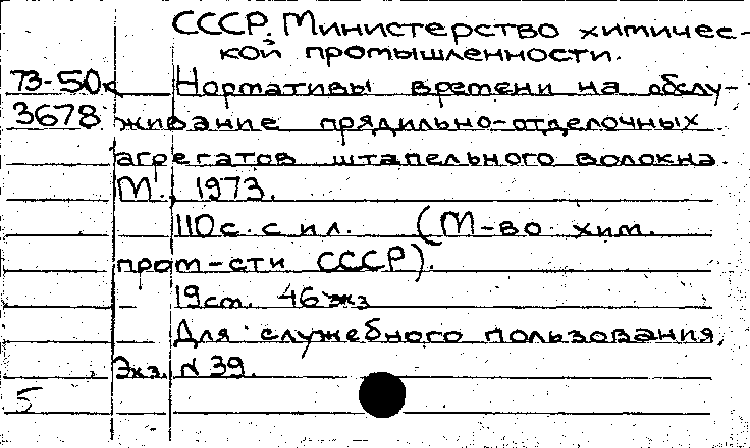 СССР. Министерство химичес-
кой промышленности.
73-50к Нормативы времени на обслу-
3678 живание прядильно-отделочных
агрегатов штапельного волокна.
М., 1973.
110с. с ил. (М-во хим.
пром-сти СССР).
19см. 46 экз
Для служебного пользования,
Экз. N 39.
5